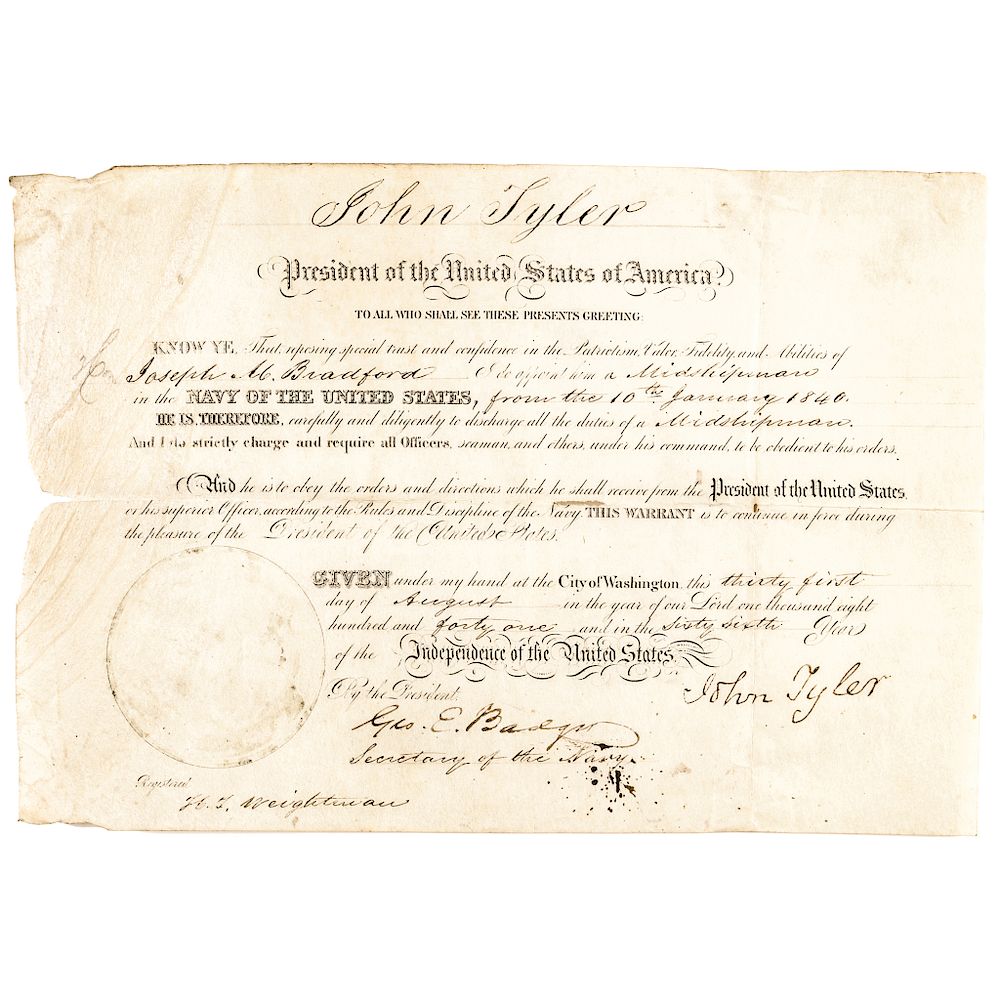 John Tyler
President of the United States of America.
TO ALL WHO SHALL SEE THESE PRESENTS GREETING:
KNOW YE, That reposing special trust and confidence in the Patriotism, Valor, Fidelity, and Abilities of
Joseph M. Bradford I do appoint him a Midshipman
in the NAVY OF THE UNITED STATES, from the 10th January 1840.
HE IS, THEREFORE, carefully and diligently to discharge all the duties of a Midshipman.
And I do strictly charge and require all Officers, seaman, and others, under his command, to be obedient to his orders.
And he is to obey the orders and directions which he shall receive from the President of the United States,
or his superior Officer, according to the Rules and Discipline of the Navy. THIS WARRANT is to continue in force during
the pleasure of the President of the United States.
GIVEN under my hand at the City of Washington, this thirty first
day of August in the year of our Lord one thousand eight
hundred and forty one and in the Sixty sixth Year
of the Independence of the United States.
By the President,
John Tyler
Geo. E. Badger
Secretary of the Navy.
Registered
H. T. Weightman